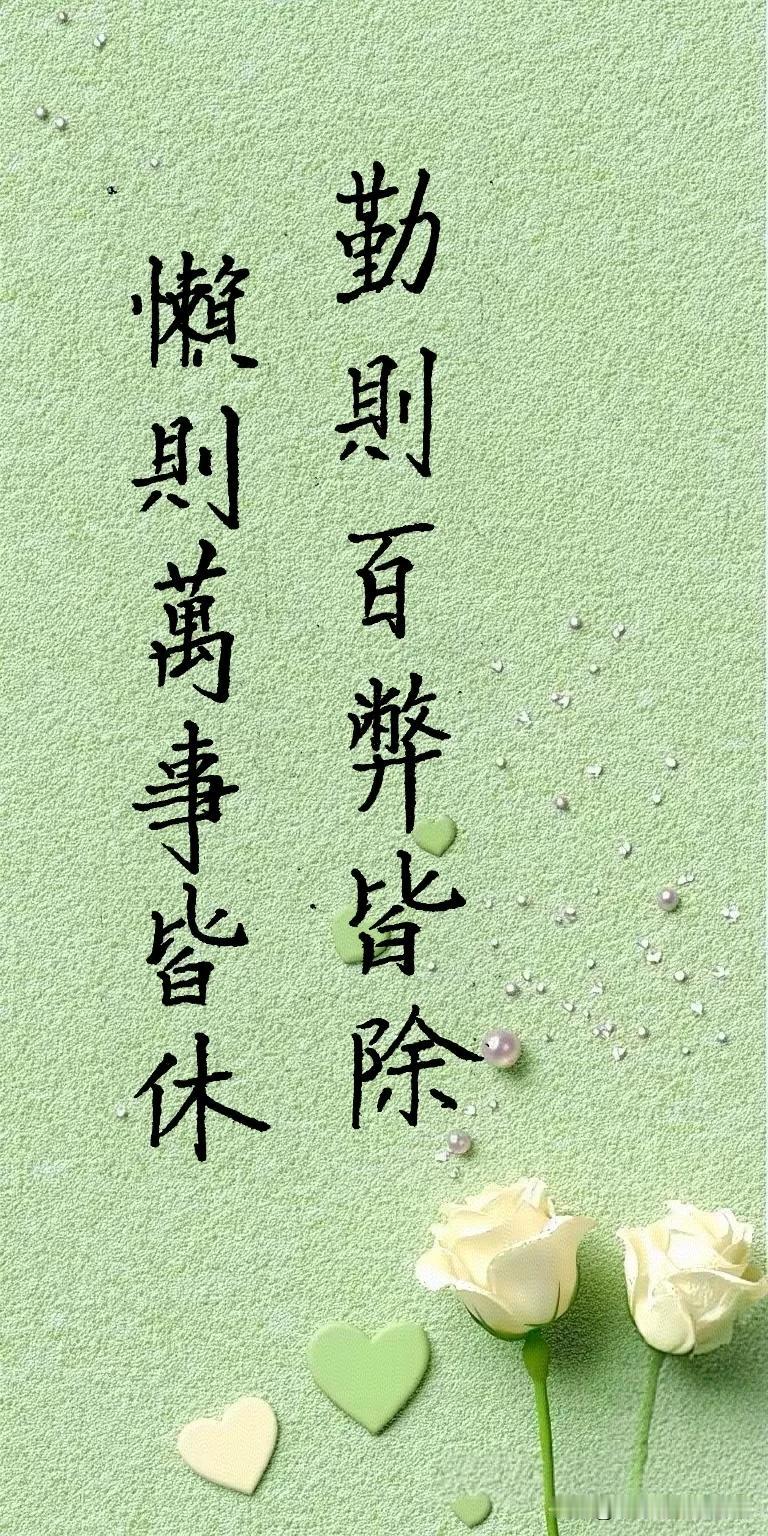 勤則百弊皆除
懶則萬事皆休